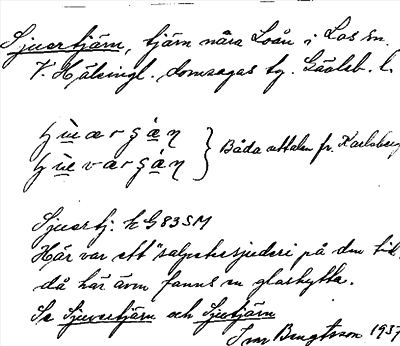 Sjuertjärn, tjärn nära Loån i Los sn.
V. Hälsingl. domsagas tg. Gävleb. l.
Båda uttalen fr. Karlsberg
Sjuertj. k G83SM
Här var ett "salpetersjuderi på den tid,
då här även fanns en glashytta.
Se Sjuvertjärn och Sjutjärn
Bengtsson 1937